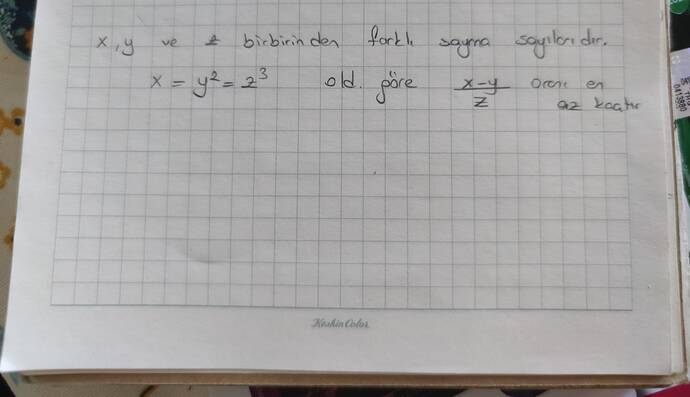 x, y ve z birbirinden farklı sayma sayılarıdır.
x = y² = z³ old. göre (x-y)/z oranı en
az kaçtır
Keskin Color
0413880